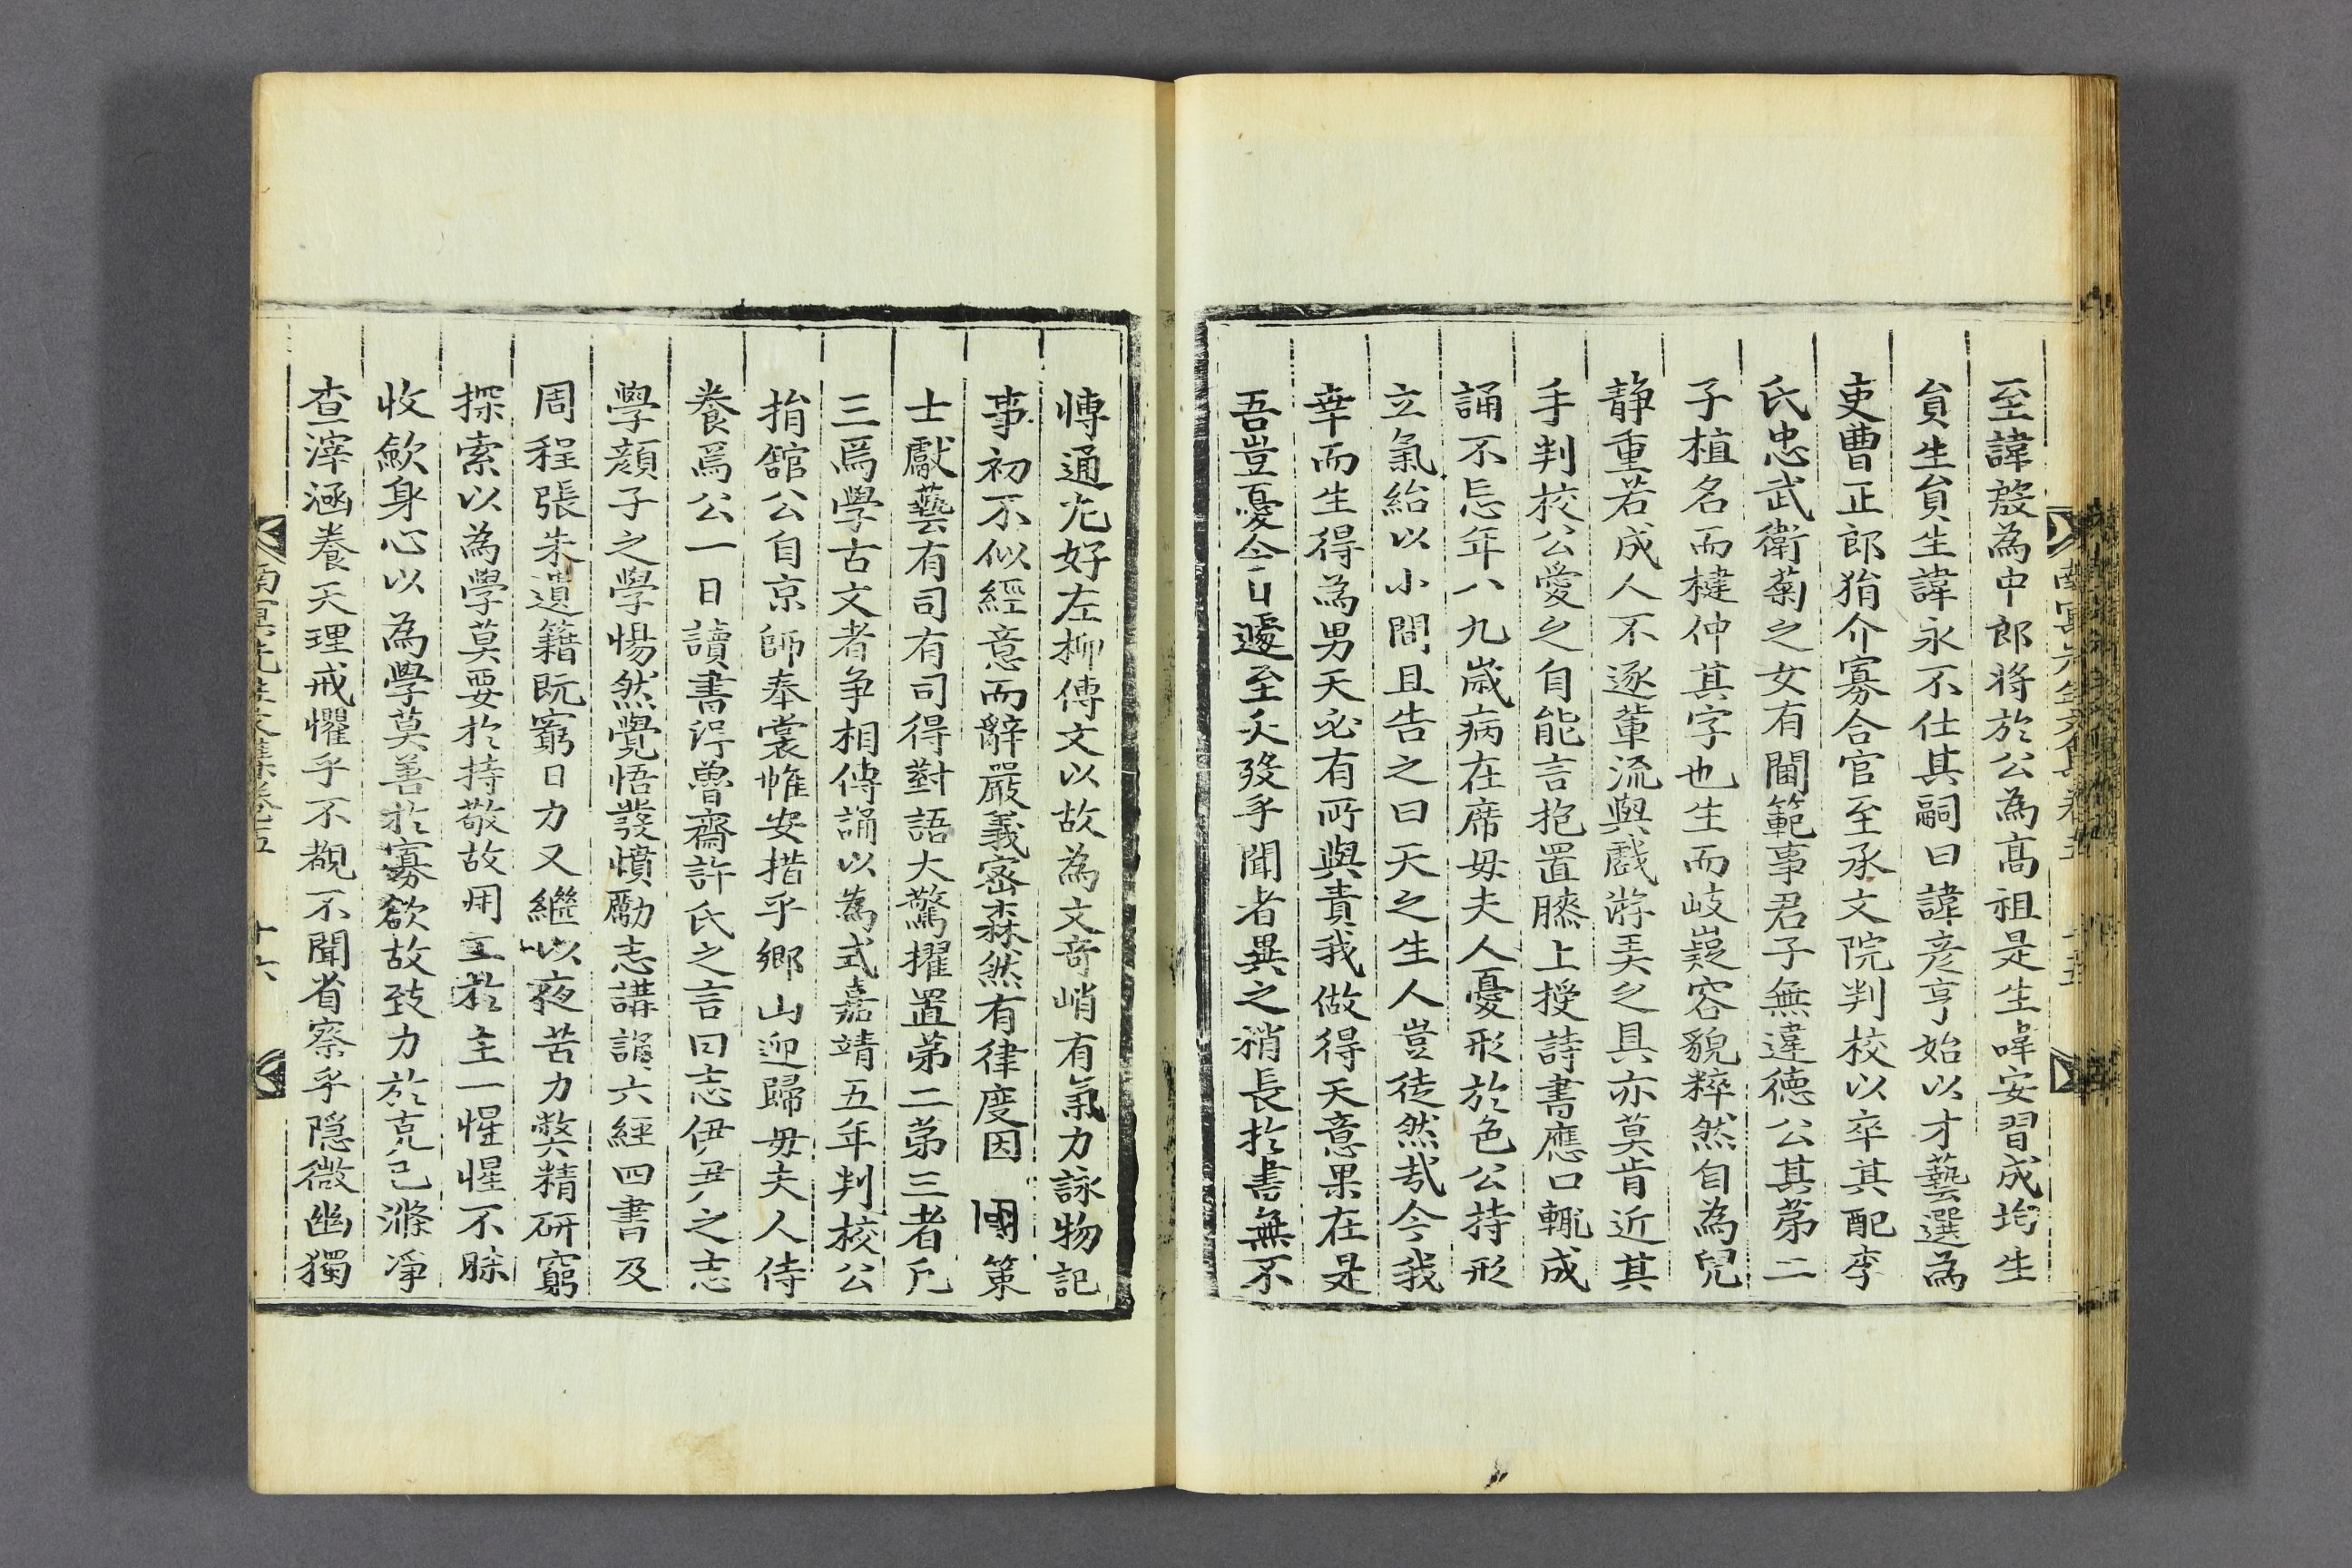 至諱殷為中郎将於公為高祖是生諱安習成均生
貟生貟生諱永不仕其嗣曰諱彦亨始以才藝選為
吏曹正郎狷介寡合官至承文院判校以卒其配李
氏忠武衛菊之女有閫範事君子無違德公其苐二
子植名而楗仲其字也生而岐嶷容貌粹然自為兒
静重若成人不逐輩流與戱游弄之具亦莫肯近其
手判校公愛之自能言抱置膝上授詩書應口輒成
誦不忘年八九歲病在席毋夫人憂形於色公持形
立氣紿以小間且告之曰天之生人豈徒然㢤今我
幸而生得為男天必有所與責我做得天意果在是
吾豈憂今日遽至夭殁乎聞者異之稍長扵書無不
愽通尤好左柳傳文以故為文奇峭有氣力詠物記
事初不似經意而辭嚴義密森然有律度因 國策
士獻藝有司有司得對語大驚擢置苐二苐三者凢
三爲學古文者争相傳誦以為式嘉靖五年判校公
捐舘公自京師奉裳帷安措乎鄉山迎歸毋夫人侍
養焉公一日讀書淂魯齋許氏之言曰志伊尹之志
學顔子之學惕然覺悟發憤勵志講誦六經四書及
周程張朱遺籍既窮日力又繼以夜苦力獘精研窮
探索以為學莫要扵持敬故用工於主一惺惺不昧
收歛身心以為學莫善扵寡欲故致力於克己滌凈
查滓涵養天理戒懼乎不覩不聞省察乎隐微幽獨
南冥先生文集卷五 十六